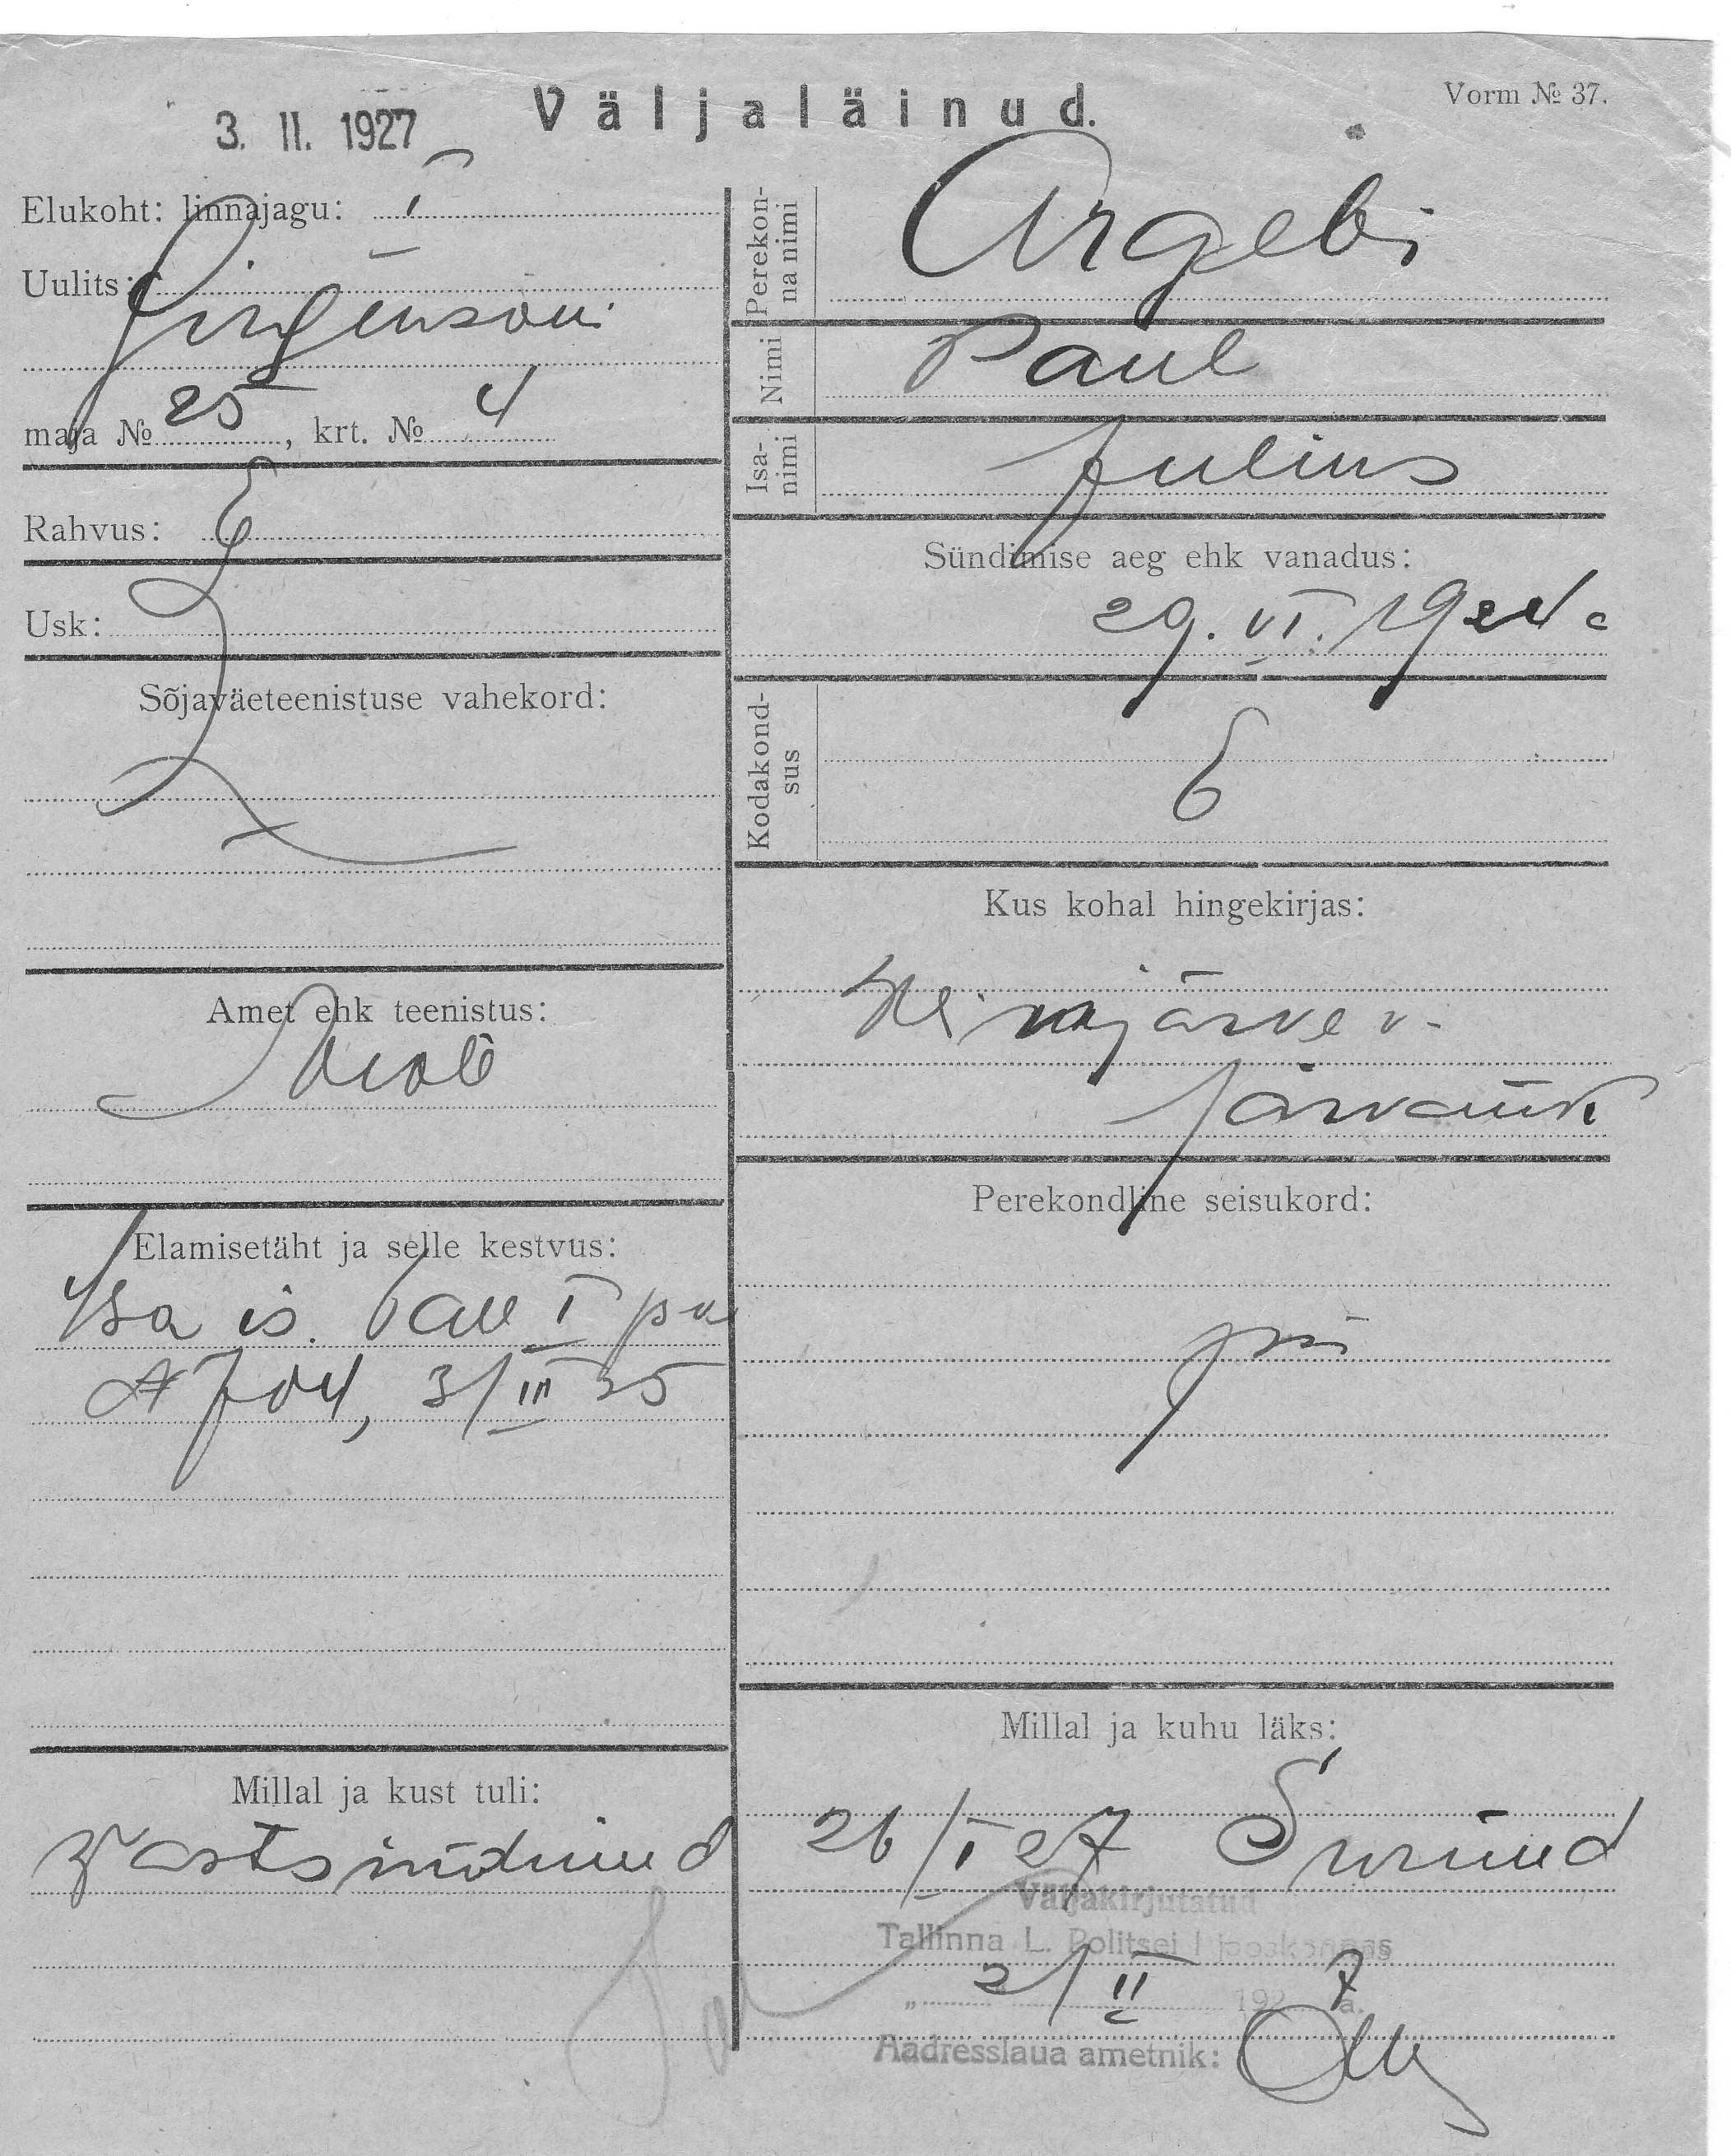 3. II. 1927
Väljaläinud.
Vorm № 37.
Elukoht: linnajagu: I
Uulits: Jürgensoni
maja № 25, krt. № 4
Rahvus: E
Usk:
Sõjaväeteenistuse vahekord:
Amet ehk teenistus:
Elamisetäht ja selle kestvus:
Isa is. Tall I
A 704, 3/III 25
Millal ja kust tuli:
Vastsündinud
Perekonna nimi
Argebi
Nimi
Paul
Isanimi
Julius
Sündimise aeg ehk vanadus:
29. VI. 1924
Kodakondsus
E
Kus kohal hingekirjas:
järve v.
Perekondline seisukord:
Millal ja kuhu läks:
26/I 27 Surnud
Väljakirjutatud
Tallinna L. Politsei I jaoskonnas
2/II 1927 a.
Aadresslaua ametnik: